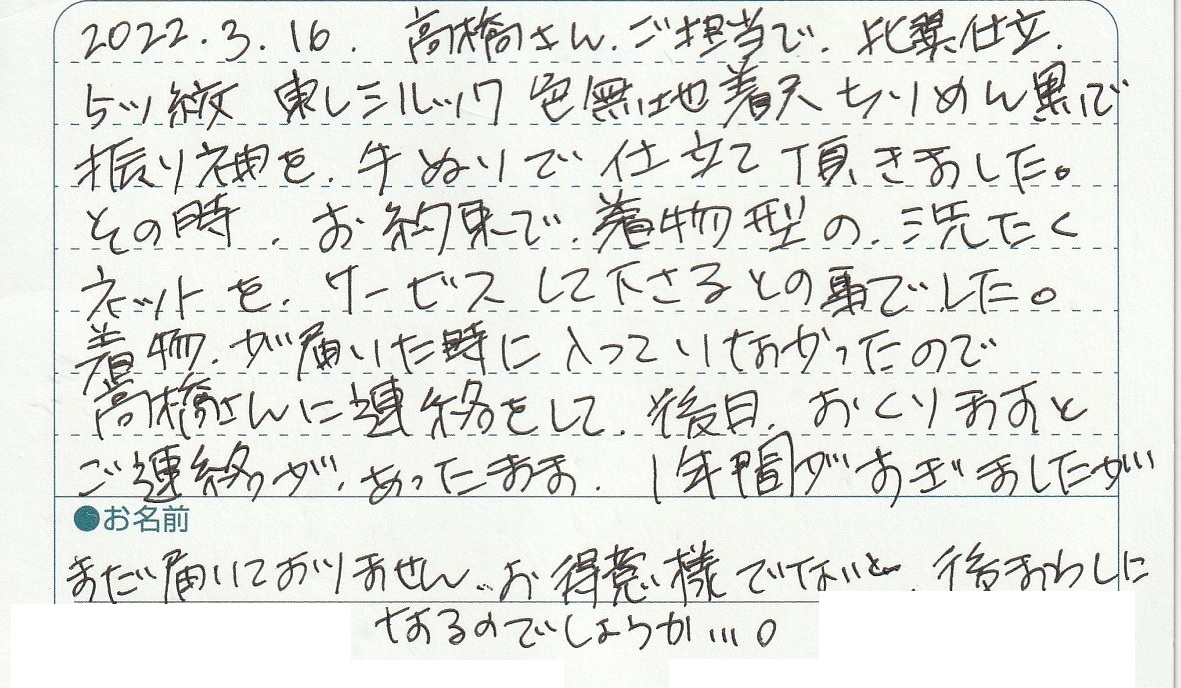 2022.3.16. 高橋さん.ご担当で.比翼仕立.
5ツ紋 東レシルック 色無地着尺 ちりめん黒で
振り袖を.手ぬいで 仕立て頂きました。
その時.お約束で.着物型の.洗たく
ネットを.サービスして下さるとの事でした。
着物.が届いた時に入っていなかったので
高橋さんに連絡をして.後日.おくりますと
ご連絡が.あったまま.1年間がすぎましたが
●お名前
まだ届いておりません..お得意様でないと.後まわしに
なるのでしょうか…。